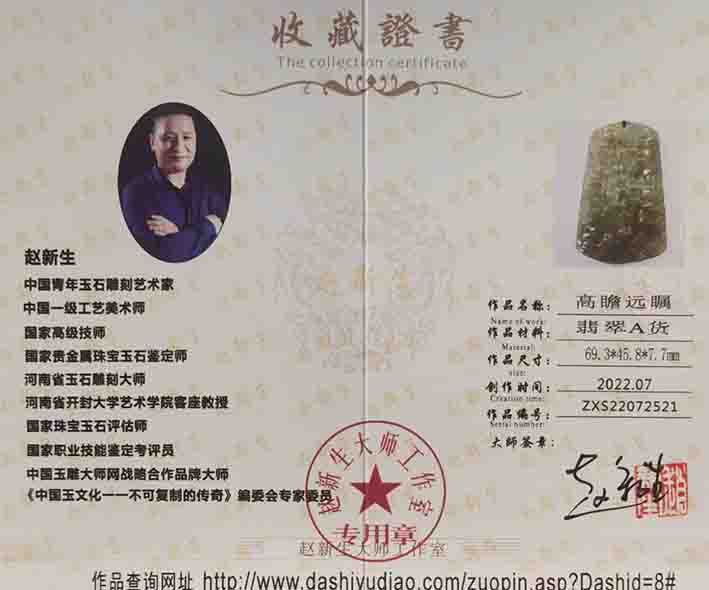 收藏證書
The collection certificate
赵新生
中国青年玉石雕刻艺术家
中国一级工艺美术师
国家高级技师
国家贵金属珠宝玉石鉴定师
河南省玉石雕刻大师
河南省开封大学艺术学院客座教授
国家珠宝玉石评估师
国家职业技能鉴定考评员
中国玉雕大师网战略合作品牌大师
《中国玉文化一一不可复制的传奇》编委会专家委员
作品名称: 高瞻远瞩
Name of work:
作品材料: 翡翠A货
Material:
作品尺寸: 69.3*45.8*7.7mm
size:
创作时间: 2022.07
Creation time:
作品编号: ZXS22072521
Serial number:
大师签章:
赵新生大师工作室
专用章
赵新生大师工作室
作品查询网址 http://www.dashiyudiao.com/zuopin.asp?Dashid=8#